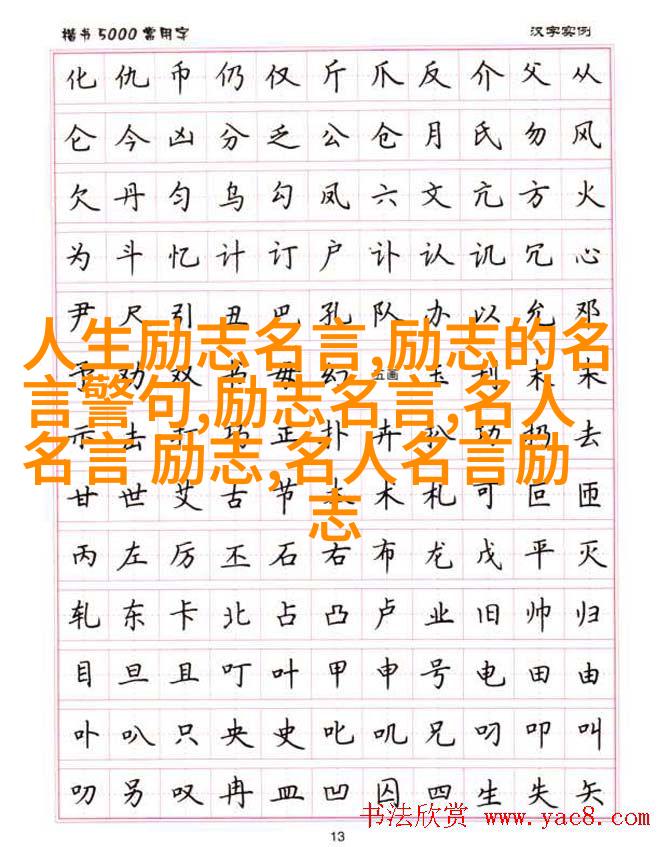 楷书5000常用字 汉字实例
化仇币仍仅斤爪反介父从
仑今凶分乏公仓月氏勿风
欠丹匀乌勾凤六文亢方火
为斗忆计订户讣认讥冗心
尹尺引丑巴孔队办以允邓
人生励志名言,励志的名
言警句,励志名言,名人
名言 励志,名人名言励
志
予劝双书毋幻 五画 玉刊未末
示击打巧正扑卉扒功扔去
甘世艾古节本术札可叵匝
丙左厉丕石右布龙戊平灭
轧东卡北占凸卢业旧帅归
目旦且叮叶甲申号电田由
卟叭只央史叱叽兄叼叩叫
叨另叹冉皿凹囚四生失矢
书法欣赏 www.yac8.com
13